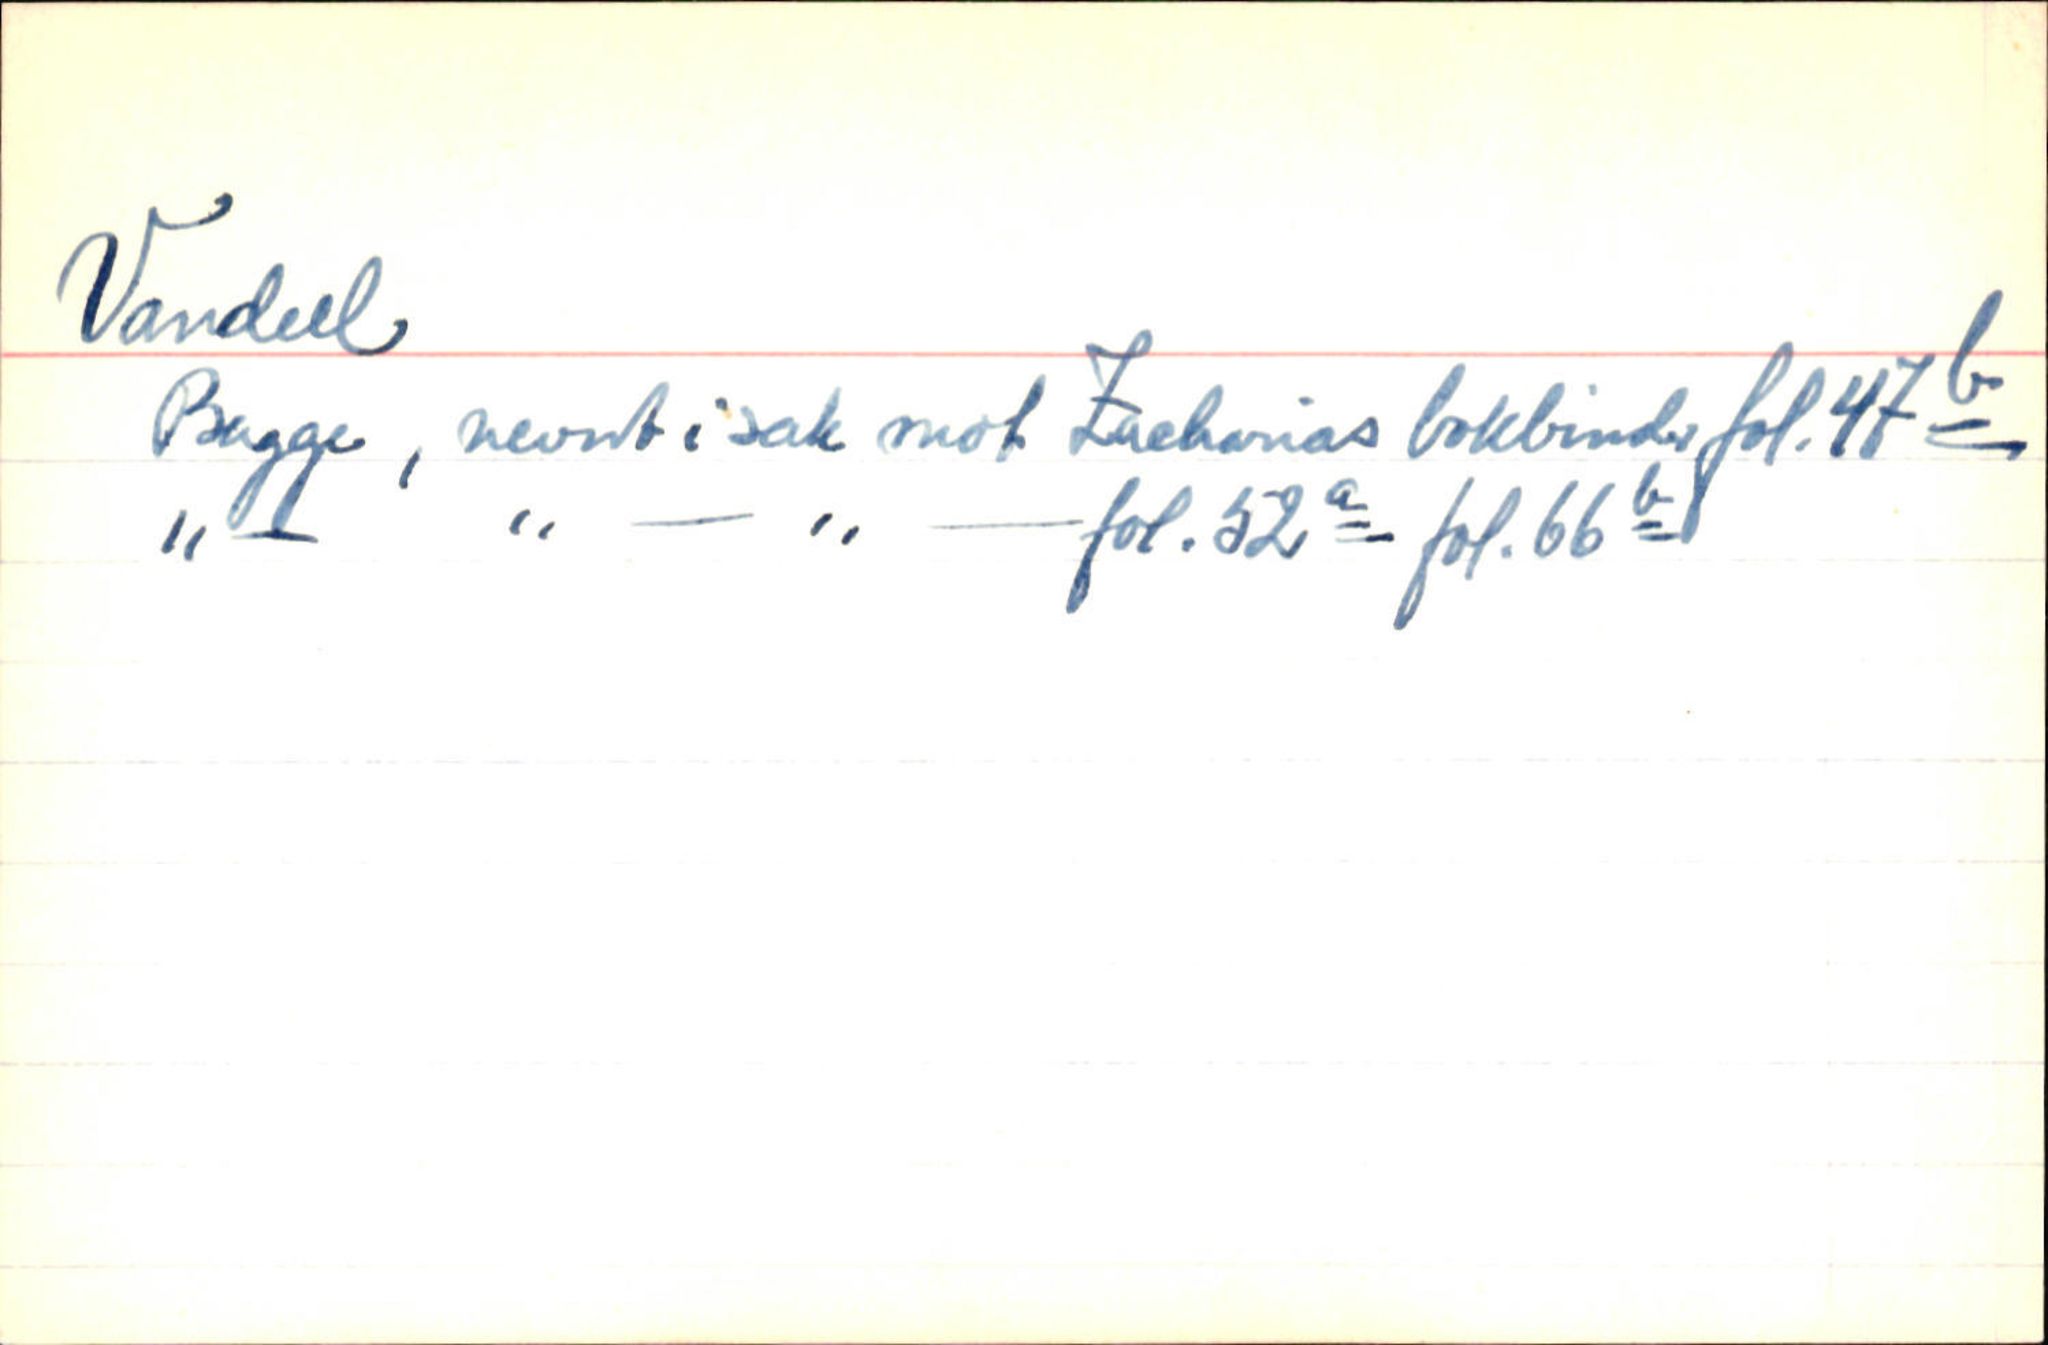 Vandeel
Bagge, nevnt i sak mot Zacharias bokbinder fol. 47 b
„ — „ — „ — fol. 52 a fol. 66 b